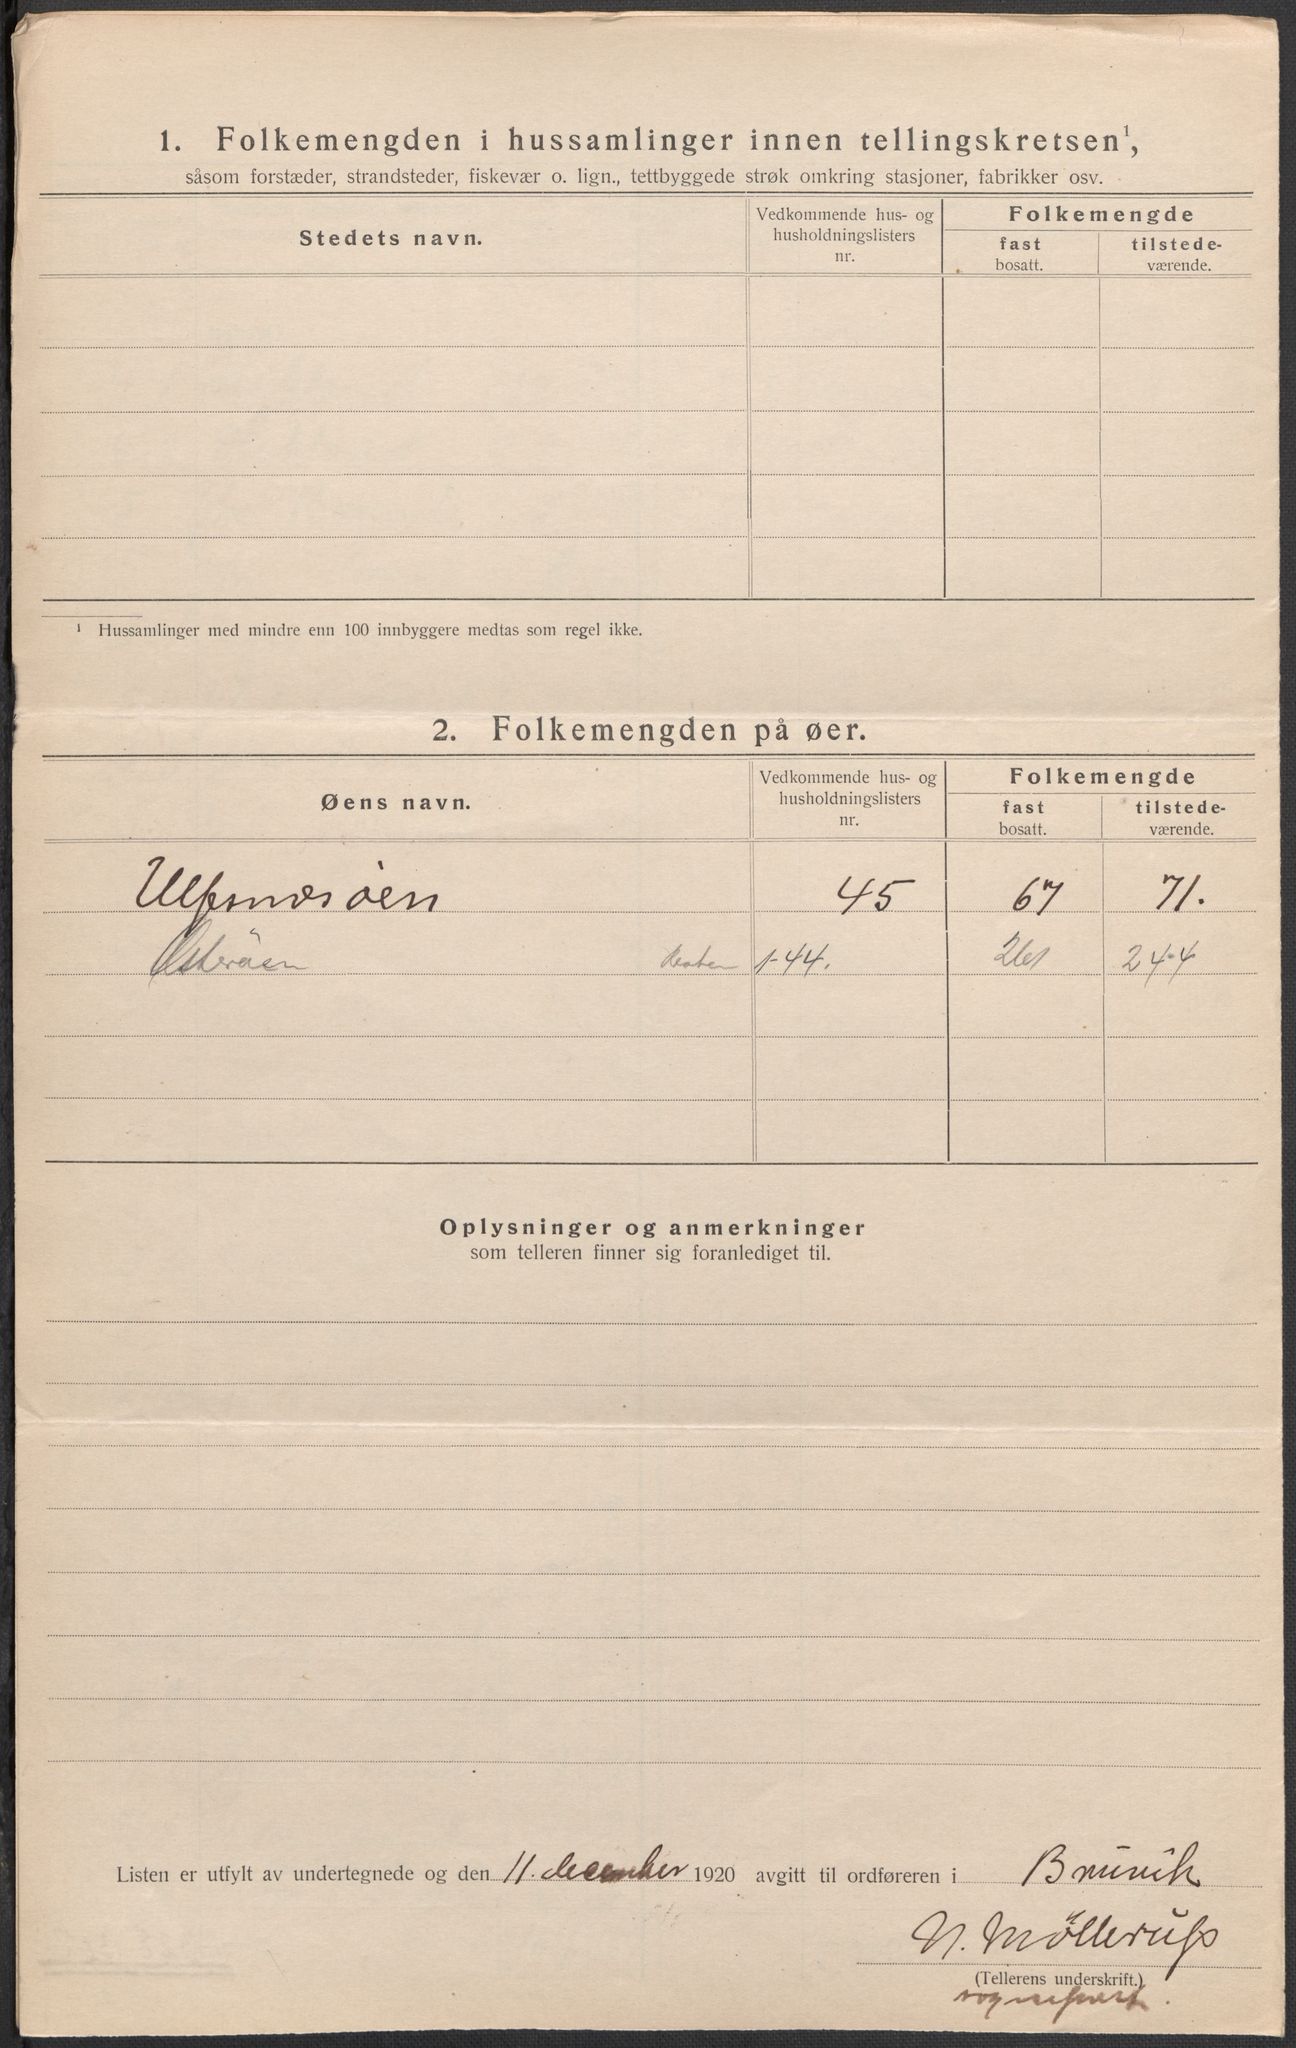 1. Folkemengden i hussamlinger innen tellingskretsen¹,
såsom forstæder, strandsteder, fiskevær o. lign., tettbyggede strøk omkring stasjoner, fabrikker osv.
Stedets navn.
Vedkommende hus- og
husholdningslisters
nr.
Folkemengde
fast
bosatt.
tilstede-
værende.
¹ Hussamlinger med mindre enn 100 innbyggere medtas som regel ikke.
2. Folkemengden på øer.
Øens navn.
Vedkommende hus- og
husholdningslisters
nr.
Folkemengde
fast
bosatt.
tilstede-
værende.
Ulfsnesöen 45 67 71.
Osteröen Resten 1-44. 261 244
Oplysninger og anmerkninger
som telleren finner sig foranlediget til.
Listen er utfylt av undertegnede og den 11. december 1920 avgitt til ordføreren i Bruvik
N. Möllerup
(Tellerens underskrift.)
sogneprest.